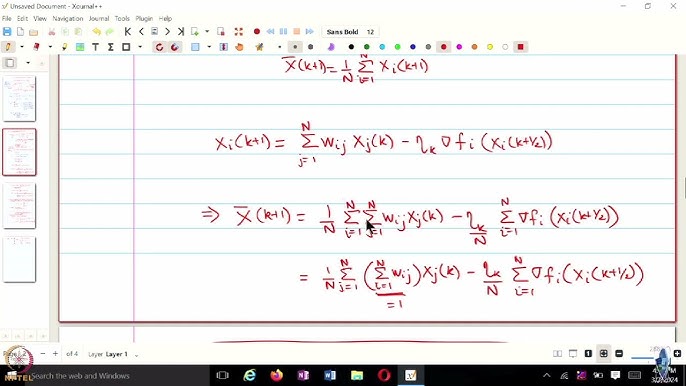 Unsaved Document - Xournal++
File Edit View Navigation Journal Tools Plugin Help
Sans Bold 12
X̄(k+1) = 1/N ∑_{i=1}^{N} x_i(k+1)
x_i(k+1) = ∑_{j=1}^{N} w_{ij} x_j(k) − η_k ∇f_i (x_i(k+1/2))
⇒ X̄(k+1) = 1/N ∑_{i=1}^{N} ∑_{j=1}^{N} w_{ij} x_j(k) − η_k/N ∑_{i=1}^{N} ∇f_i (x_i(k+1/2))
= 1/N ∑_{j=1}^{N} (∑_{i=1}^{N} w_{ij}) x_j(k) − η_k/N ∑_{i=1}^{N} ∇f_i (x_i(k+1/2))
=1
of 4 Layer Layer 1
NPTEL
the web and Windows